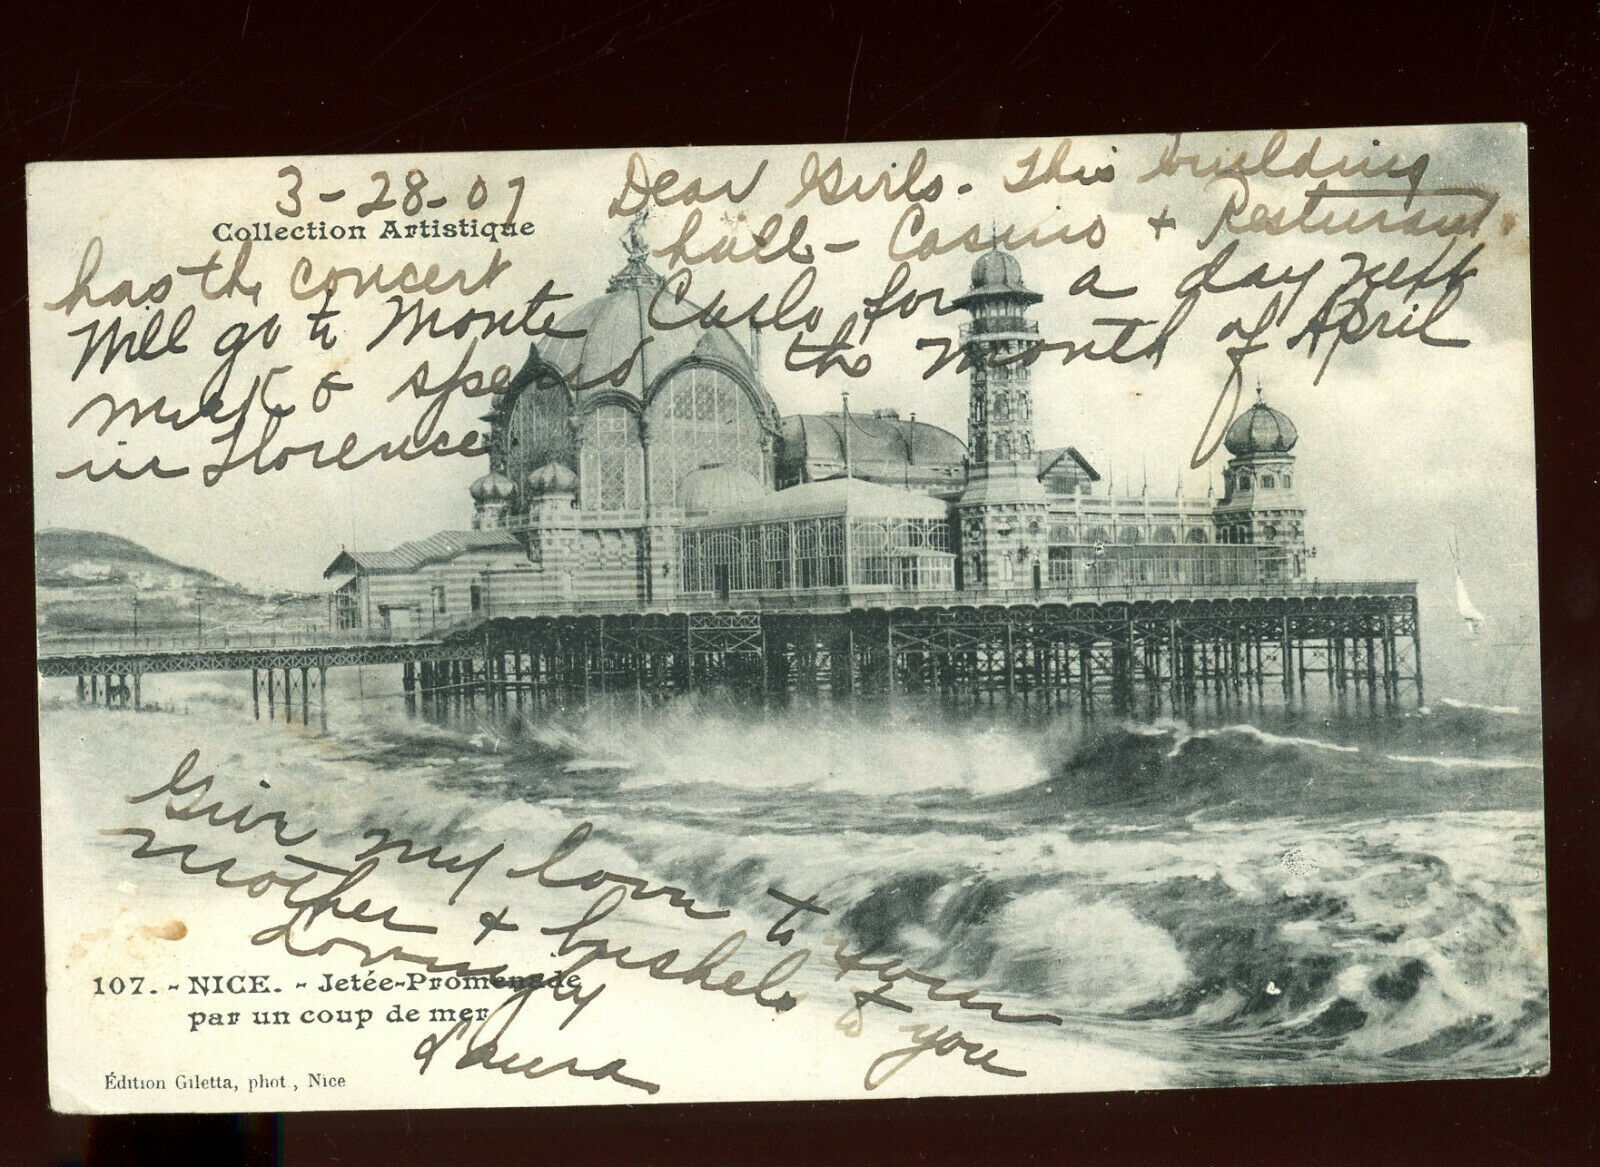 3-28-07 Dear Girls. This building
Collection Artistique
has the concert hall - Casino + Resturant.
Will go to Monte Carlo for a day next
week & spend the month of April
in Florence
Give my love to your
mother & bushels to you
Lovingly
Laura
107. - NICE. - Jetée-Promenade
par un coup de mer
Édition Giletta, phot., Nice